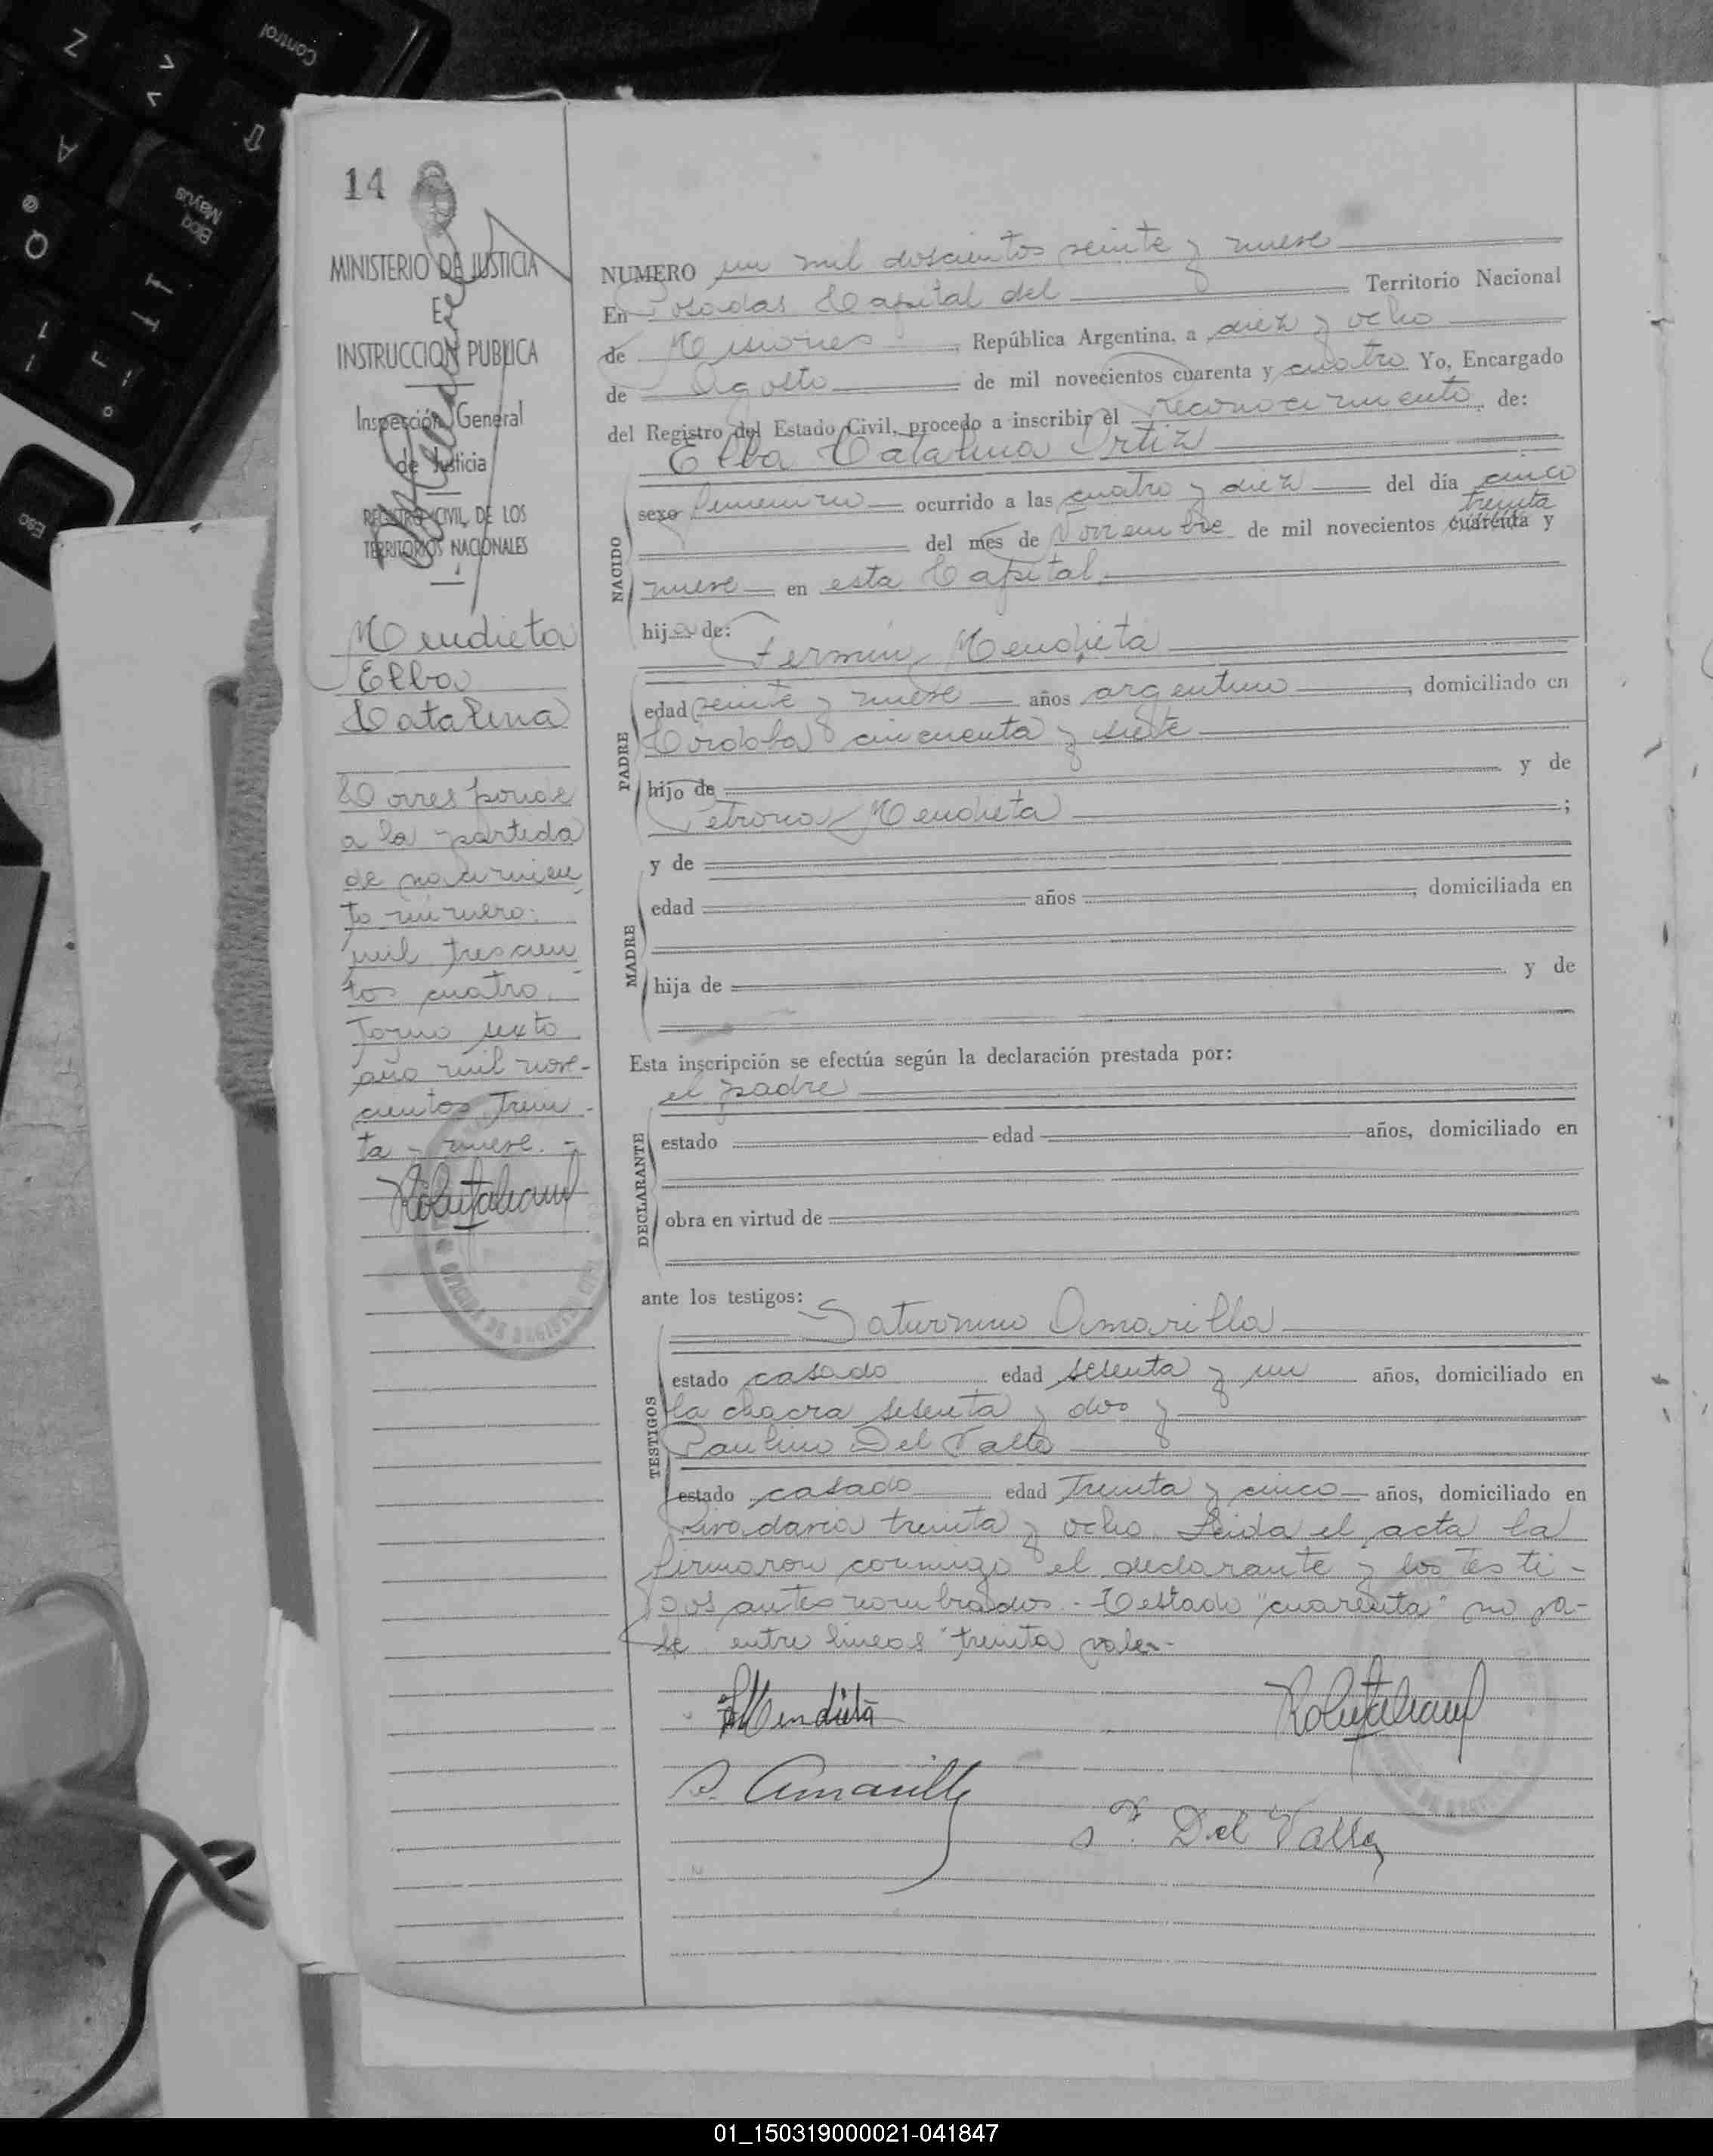 14
MINISTERIO DE JUSTICIA
E
INSTRUCCION PUBLICA
Inspección General
de Justicia
REGISTRO CIVIL DE LOS
TERRITORIOS NACIONALES
Mendieta
Elba
Catalina
Corresponde
a la partida
de nacimien
to número:
mil trescien
tos cuatro.
Tomo sexto
año mil nove-
cientos trein-
ta y nueve.-
NUMERO un mil doscientos veinte y nueve
En Posadas Capital del Territorio Nacional
de Misiones, República Argentina, a diez y ocho
de Agosto de mil novecientos cuarenta y cuatro Yo, Encargado
del Registro del Estado Civil, procedo a inscribir el reconocimiento de:
Elba Catalina Ortiz
NACIDO
sexo femenino ocurrido a las cuatro y diez del día cinco
treinta
del mes de Noviembre de mil novecientos cuarenta y
nueve en esta Capital.
hija de:
Fermin Mendieta
PADRE
edad veinte y nueve años argentino, domiciliado en
Cordoba cincuenta y siete
hijo de y de
Petrona Mendieta ;
MADRE
y de
edad años , domiciliada en
hija de y de
Esta inscripción se efectúa según la declaración prestada por:
el padre
DECLARANTE
estado edad años, domiciliado en
obra en virtud de
ante los testigos:
Saturnino Amarilla
TESTIGOS
estado casado edad sesenta y un años, domiciliado en
la chacra sesenta y dos y
Paulino Del Valle
estado casado edad treinta y cinco años, domiciliado en
Rivadavia treinta y ocho. Leida el acta la
firmaron conmigo el declarante y los testi-
gos antes nombrados.- Testado "cuarenta" no va-
le entre lineas "treinta" vale.-
FMendieta
S. Amarilla
P. Del Valle
OFICINA DE REGISTRO CIVIL
01_150319000021-041847